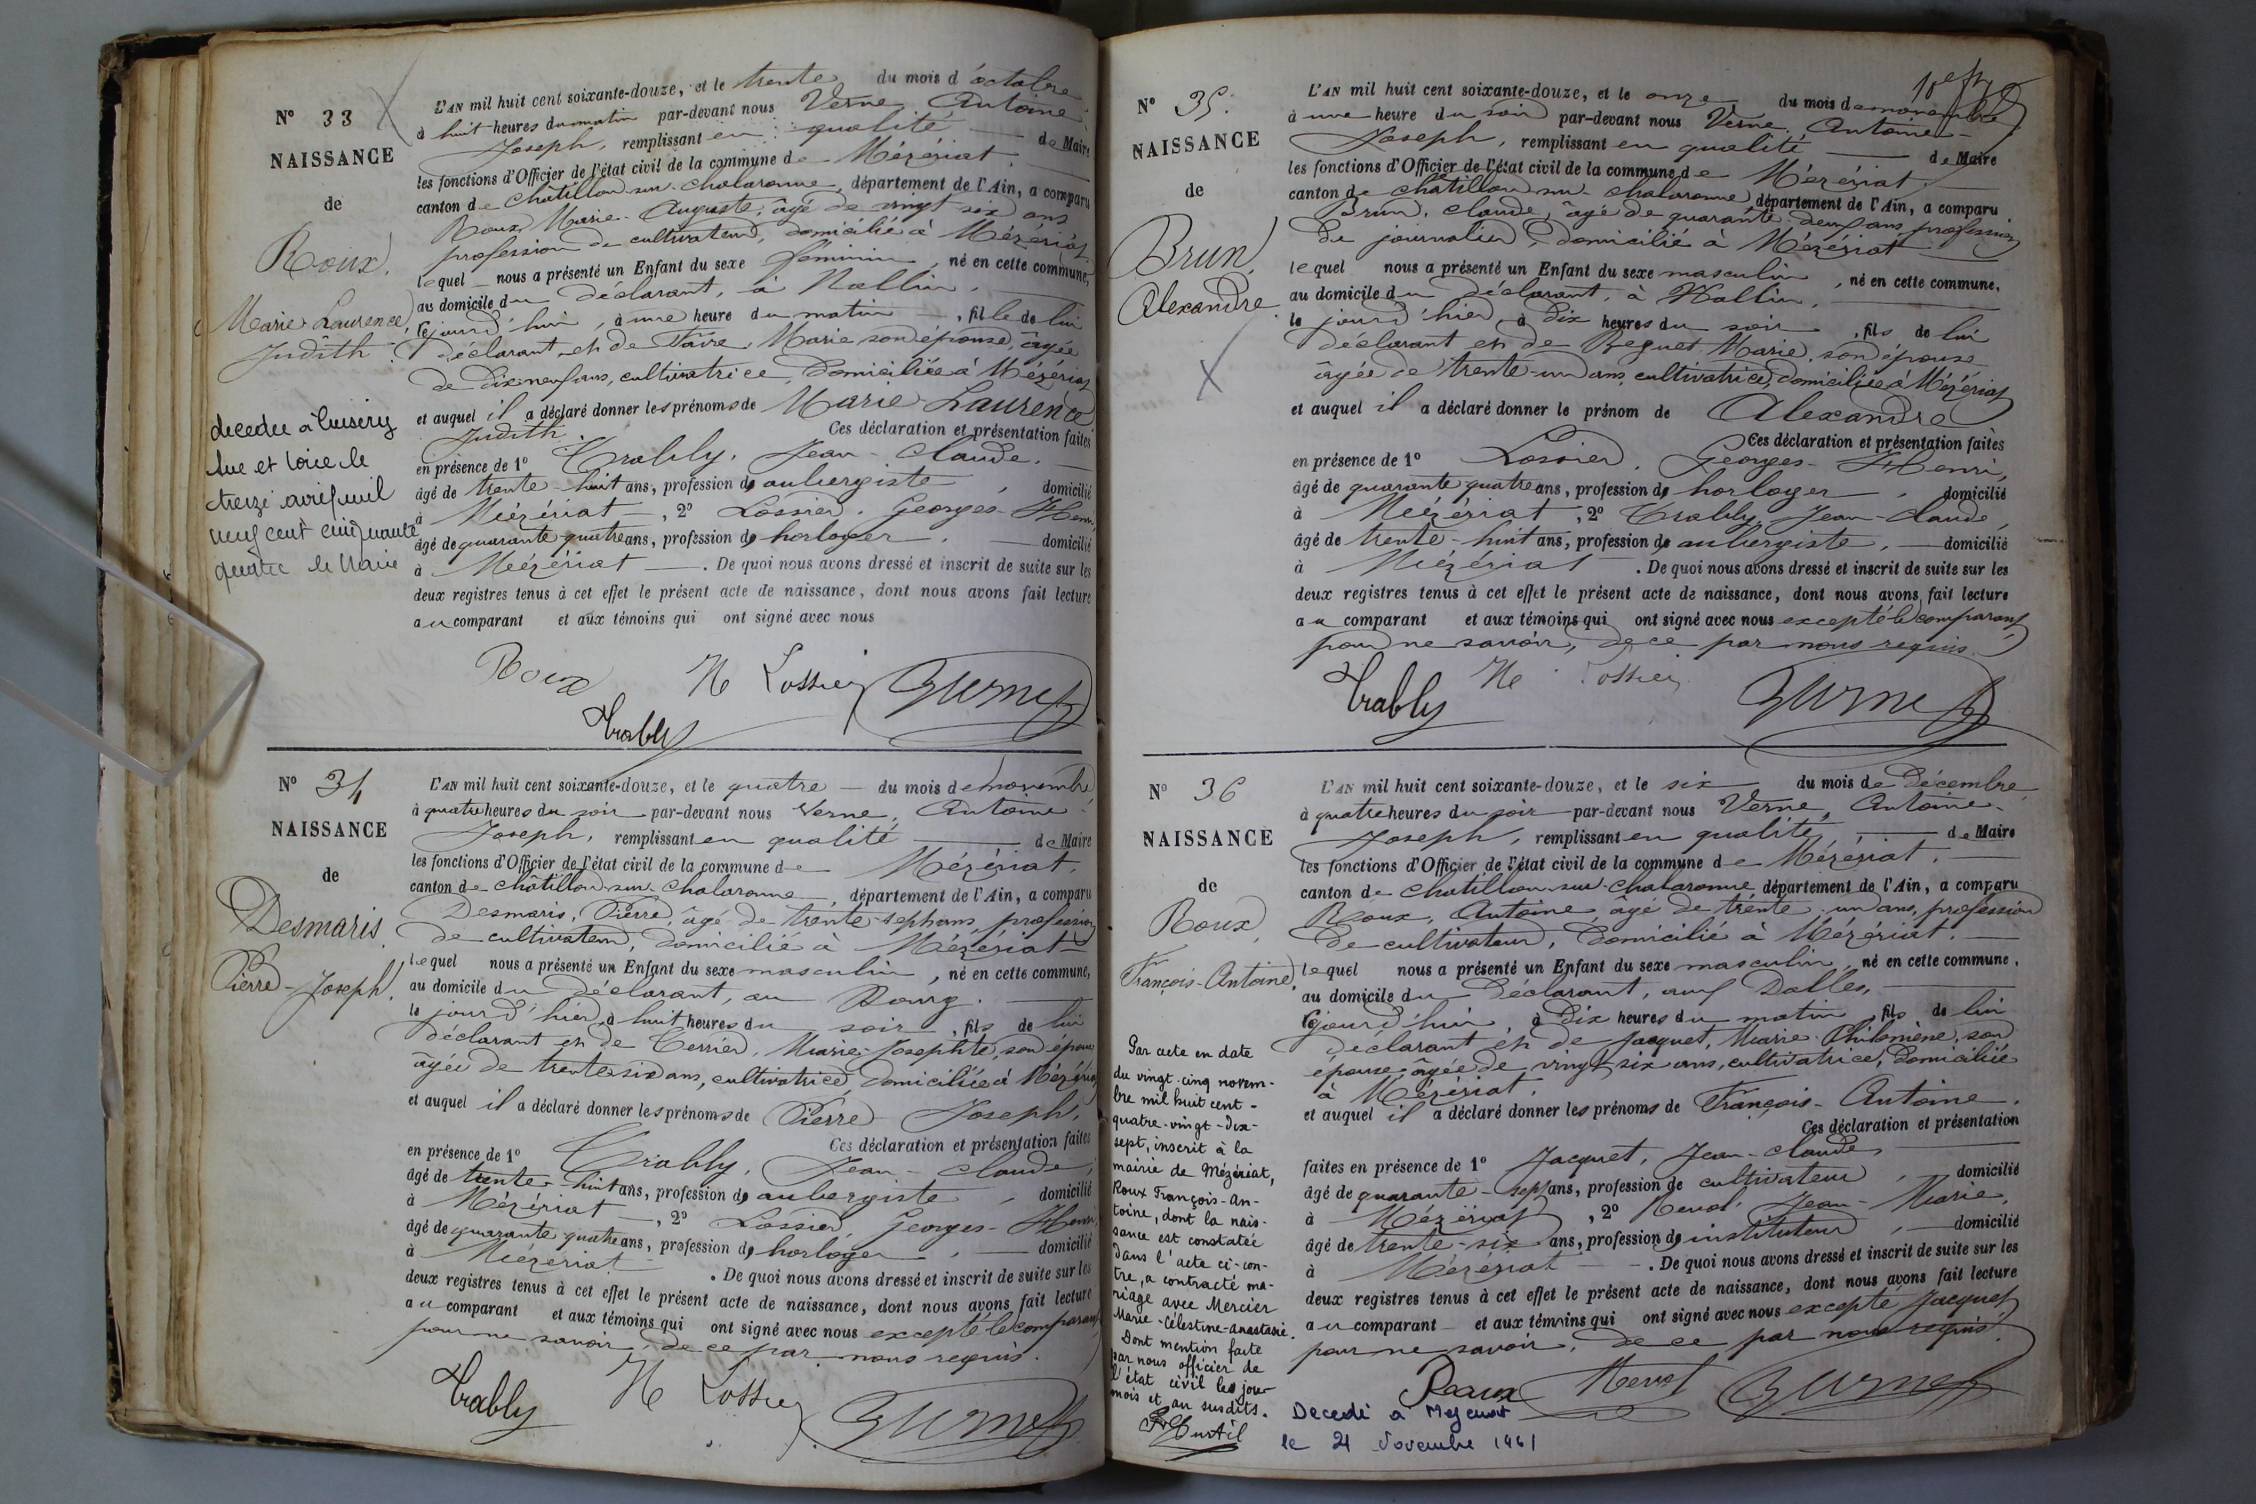 N° 33
NAISSANCE
de
Roux,
Marie Laurence
Judith
decedee à Cuisery
le
neuf cent cinquante
quatre le Maire
L'AN mil huit cent soixante-douze, et le trente du mois d'octobre
à huit heures du matin par-devant nous Verne, Antoine
Joseph, remplissant en qualité de Maire
les fonctions d'Officier de l'état civil de la commune de Mézériat,
canton de Châtillon-sur-Chalaronne, département de l'Ain, a comparu
Roux, Marie-Auguste, âgé de vingt six ans
profession de cultivateur, domicilié à Mézériat
lequel nous a présenté un Enfant du sexe féminin, né en cette commune,
au domicile du déclarant, à
cejourd'hui, à une heure du matin, fille de lui
déclarant et de Marie son épouse, âgée
de dix neuf ans, cultivatrice, domiciliée à Mézériat
et auquel il a déclaré donner les prénoms de Marie Laurence
Judith. Ces déclaration et présentation faites
en présence de 1° Trably, Jean-Claude,
âgé de trente-huit ans, profession de aubergiste, domicilié
à Mézériat, 2° Lossier, Georges-Henri,
âgé de quarante-quatre ans, profession de horloger, domicilié
à Mézériat. De quoi nous avons dressé et inscrit de suite sur les
deux registres tenus à cet effet le présent acte de naissance, dont nous avons fait lecture
au comparant et aux témoins qui ont signé avec nous
Roux H Lossier Verne
Trably
N° 34
NAISSANCE
de
Desmaris
Pierre-Joseph.
L'AN mil huit cent soixante-douze, et le quatre du mois de novembre
à quatre heures du soir par-devant nous Verne, Antoine
Joseph, remplissant en qualité de Maire
les fonctions d'Officier de l'état civil de la commune de Mézériat,
canton de Châtillon-sur-Chalaronne, département de l'Ain, a comparu
Desmaris, Pierre, âgé de trente-sept ans, profession
de cultivateur, domicilié à Mézériat
lequel nous a présenté un Enfant du sexe masculin, né en cette commune,
au domicile du déclarant, au Bourg.
le jour d'hier, à huit heures du soir, fils de lui
déclarant et de Terrier, Marie-Josephte, son épouse
âgée de trente-six ans, cultivatrice, domiciliée à Mézériat
et auquel il a déclaré donner les prénoms de Pierre Joseph.
Ces déclaration et présentation faites
en présence de 1° Trably, Jean-Claude,
âgé de trente-huit ans, profession de aubergiste, domicilié
à Mézériat, 2° Lossier, Georges-Henri,
âgé de quarante quatre ans, profession de horloger, domicilié
à Mézériat. De quoi nous avons dressé et inscrit de suite sur les
deux registres tenus à cet effet le présent acte de naissance, dont nous avons fait lecture
au comparant et aux témoins qui ont signé avec nous excepté le comparant
pour ne savoir, de ce par nous requis.
Trably H Lossier Verne
N° 35.
NAISSANCE
de
Brun,
Alexandre
L'AN mil huit cent soixante-douze, et le onze du mois de novembre
à une heure du soir par-devant nous Verne, Antoine-
Joseph, remplissant en qualité de Maire
les fonctions d'Officier de l'état civil de la commune de Mézériat
canton de Châtillon-sur-Chalaronne, département de l'Ain, a comparu
Brun, Claude, âgé de quarante-deux ans, profession
de journalier, domicilié à Mézériat
lequel nous a présenté un Enfant du sexe masculin, né en cette commune,
au domicile du déclarant, à
le jour d'hier, à dix heures du soir, fils de lui
déclarant et de Marie, son épouse
âgée de trente-un ans, cultivatrice, domiciliée à Mézériat
et auquel il a déclaré donner le prénom de Alexandre
Ces déclaration et présentation faites
en présence de 1° Lossier, Georges-Henri,
âgé de quarante quatre ans, profession de horloger, domicilié
à Mézériat, 2° Trably, Jean-Claude,
âgé de trente-huit ans, profession de aubergiste, domicilié
à Mézériat. De quoi nous avons dressé et inscrit de suite sur les
deux registres tenus à cet effet le présent acte de naissance, dont nous avons fait lecture
au comparant et aux témoins qui ont signé avec nous excepté le comparant
pour ne savoir, de ce par nous requis.
Trably H Lossier Verne
N° 36
NAISSANCE
de
Roux,
François-Antoine.
Par acte en date
du vingt-cinq novem-
bre mil huit cent-
quatre-vingt-dix-
sept, inscrit à la
mairie de Mézériat,
Roux François-An-
toine, dont la nais-
sance est constatée
dans l'acte ci-con-
tre, a contracté ma-
riage avec Mercier
Marie-Célestine-Anastasie.
Dont mention faite
par nous officier de
l'état civil les jour
mois et an susdits.
L'AN mil huit cent soixante-douze, et le six du mois de Décembre
à quatre heures du soir par-devant nous Verne, Antoine-
Joseph, remplissant en qualité, de Maire
les fonctions d'Officier de l'état civil de la commune de Mézériat,
canton de Chatillon-sur-Chalaronne, département de l'Ain, a comparu
Roux, Antoine, âgé de trente-un ans, profession
de cultivateur, domicilié à Mézériat.
lequel nous a présenté un Enfant du sexe masculin, né en cette commune,
au domicile du déclarant, aux Dalles,
cejourd'hui, à dix heures du matin, fils de lui
déclarant et de Jacquet, Marie Philomène, son
épouse âgée de vingt-six ans, cultivatrice, domiciliée
à Mézériat.
et auquel il a déclaré donner les prénoms de François-Antoine.
Ces déclaration et présentation
faites en présence de 1° Jacquet, Jean-Claude,
âgé de quarante-sept ans, profession de cultivateur, domicilié
à Mézériat, 2° Revol, Jean-Marie,
âgé de trente-six ans, profession de instituteur, domicilié
à Mézériat. De quoi nous avons dressé et inscrit de suite sur les
deux registres tenus à cet effet le présent acte de naissance, dont nous avons fait lecture
au comparant et aux témoins qui ont signé avec nous excepté Jacquet
pour ne savoir, de ce par nous requis.
Roux Revol Verne
Decedé a Mezeriat
le 21 Novembre 1961